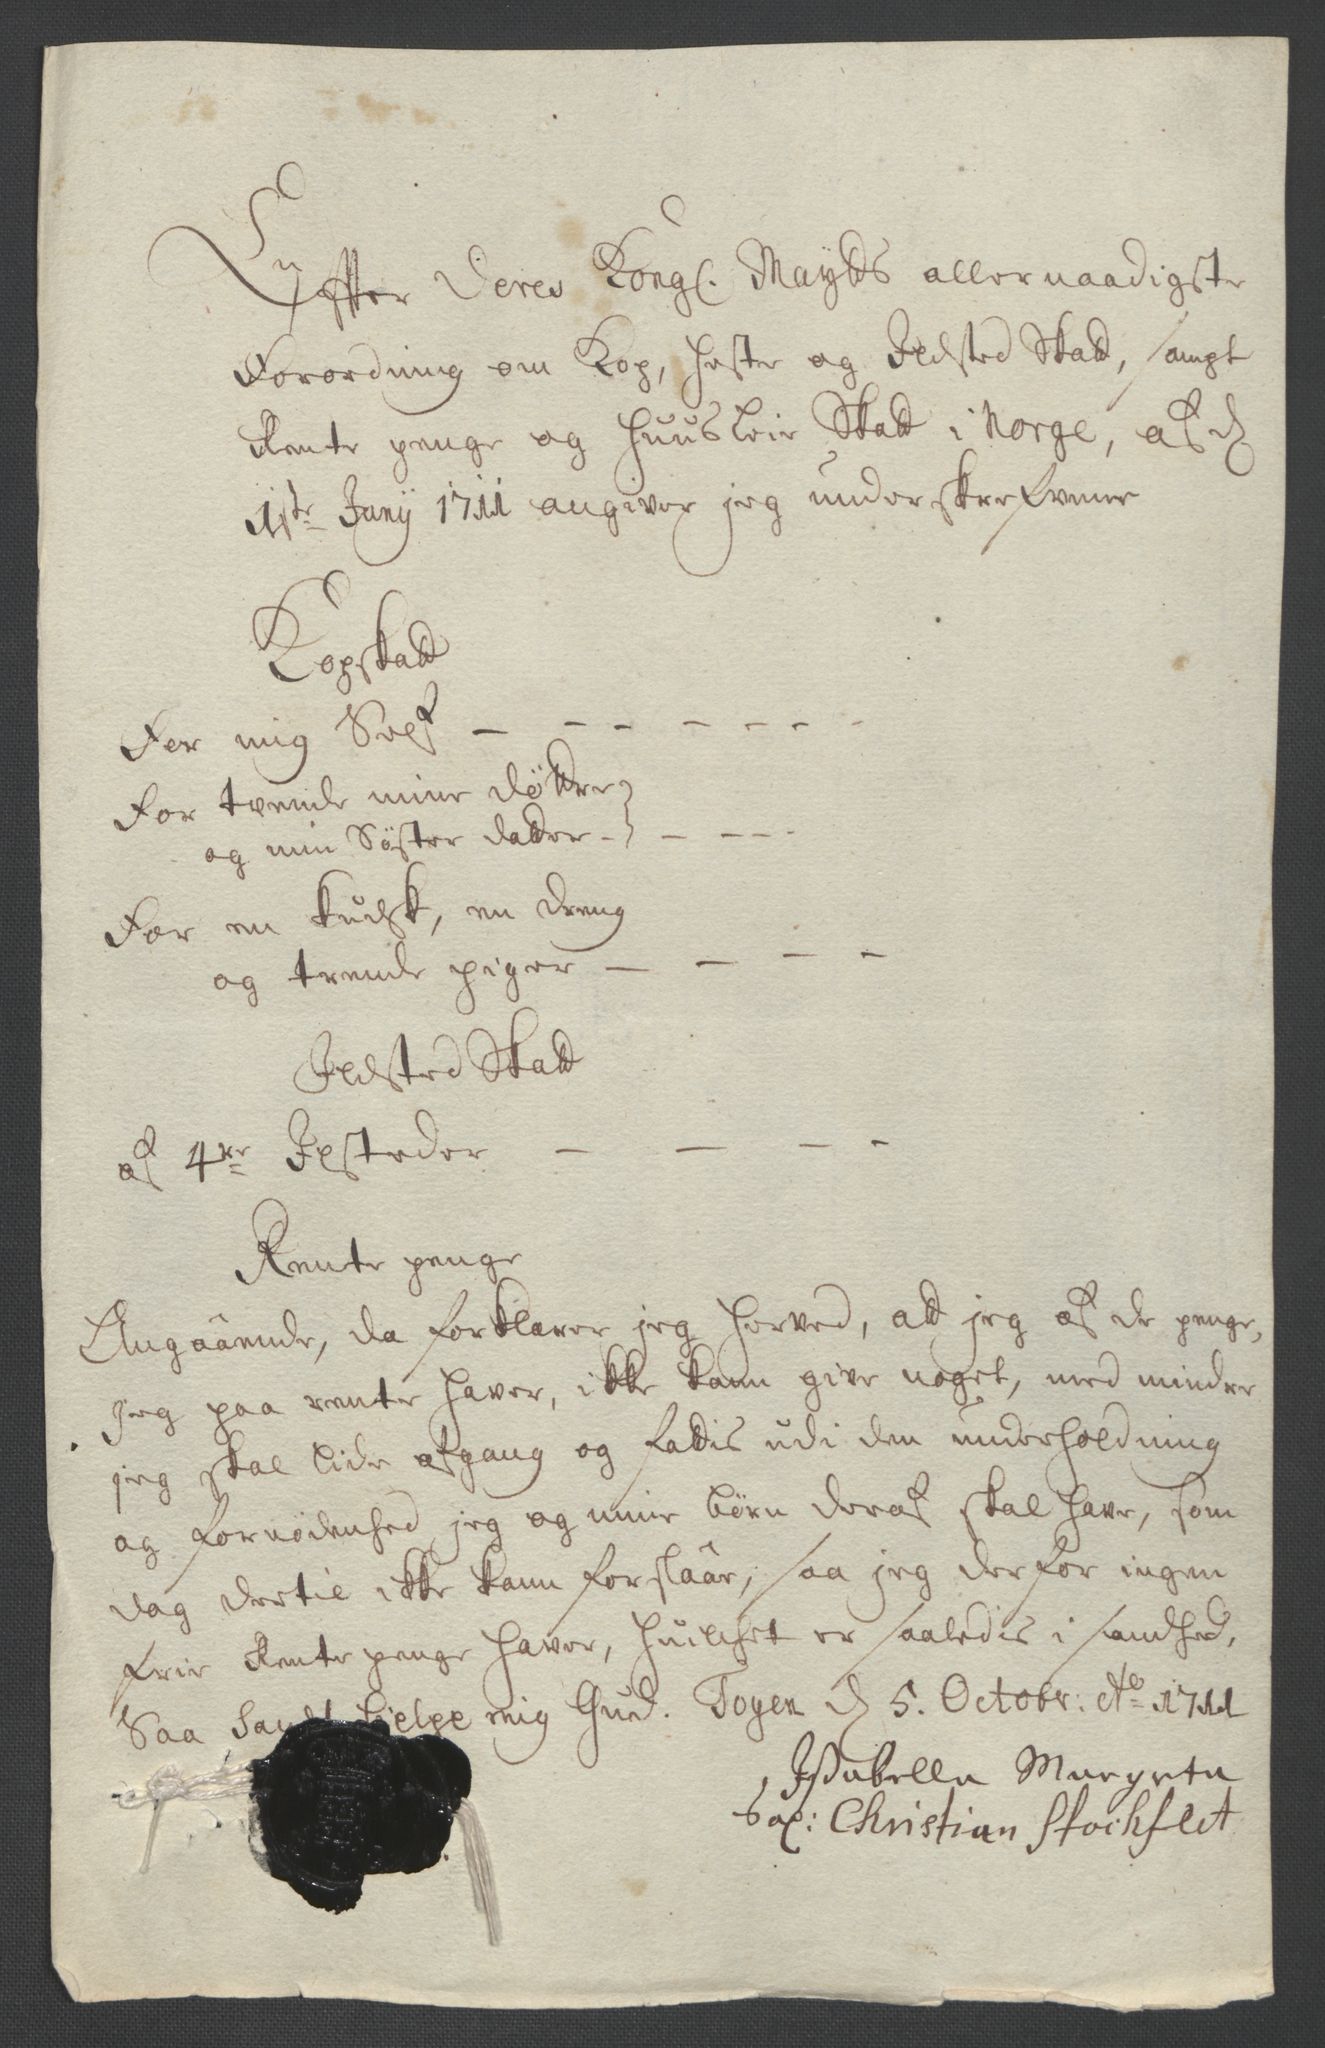 Effter Deres Kongl. Maytts allernaadigste
Forordning om Kop, Heste og Ildsted Skatt, sampt
Rente penge og Huusleie Skatt i Norge, af d
1ste Junij 1711 angiver jeg underskrefvene
Kopskatt
For mig Self — — — — — — —
For tvende mine døttre
og min Søster datter — — — — —
For en kudsk, en dreng
og trende piger — — — —
Ildsted Skatt
af 4re Ilsteder — — — —
Rente penge
Angaaende, da forklarer jeg herved, att jeg af de penge,
jeg paa rente haver, ikke kann give noget, med mindre
jeg skal lide afgang og fattis udi den underholdning
og fornødenhed jeg og mine børn deraf skal have, som
dog dertil ikke kann forslaae, saa jeg derfor ingen
frie Rente penge haver, huilchet er saaledis i sandhed,
Saa Sandt hielpe mig Gud. Toyen d 5. Octobr: Ao 1711
Issabella Margreta
Sal: Christian Stockflet